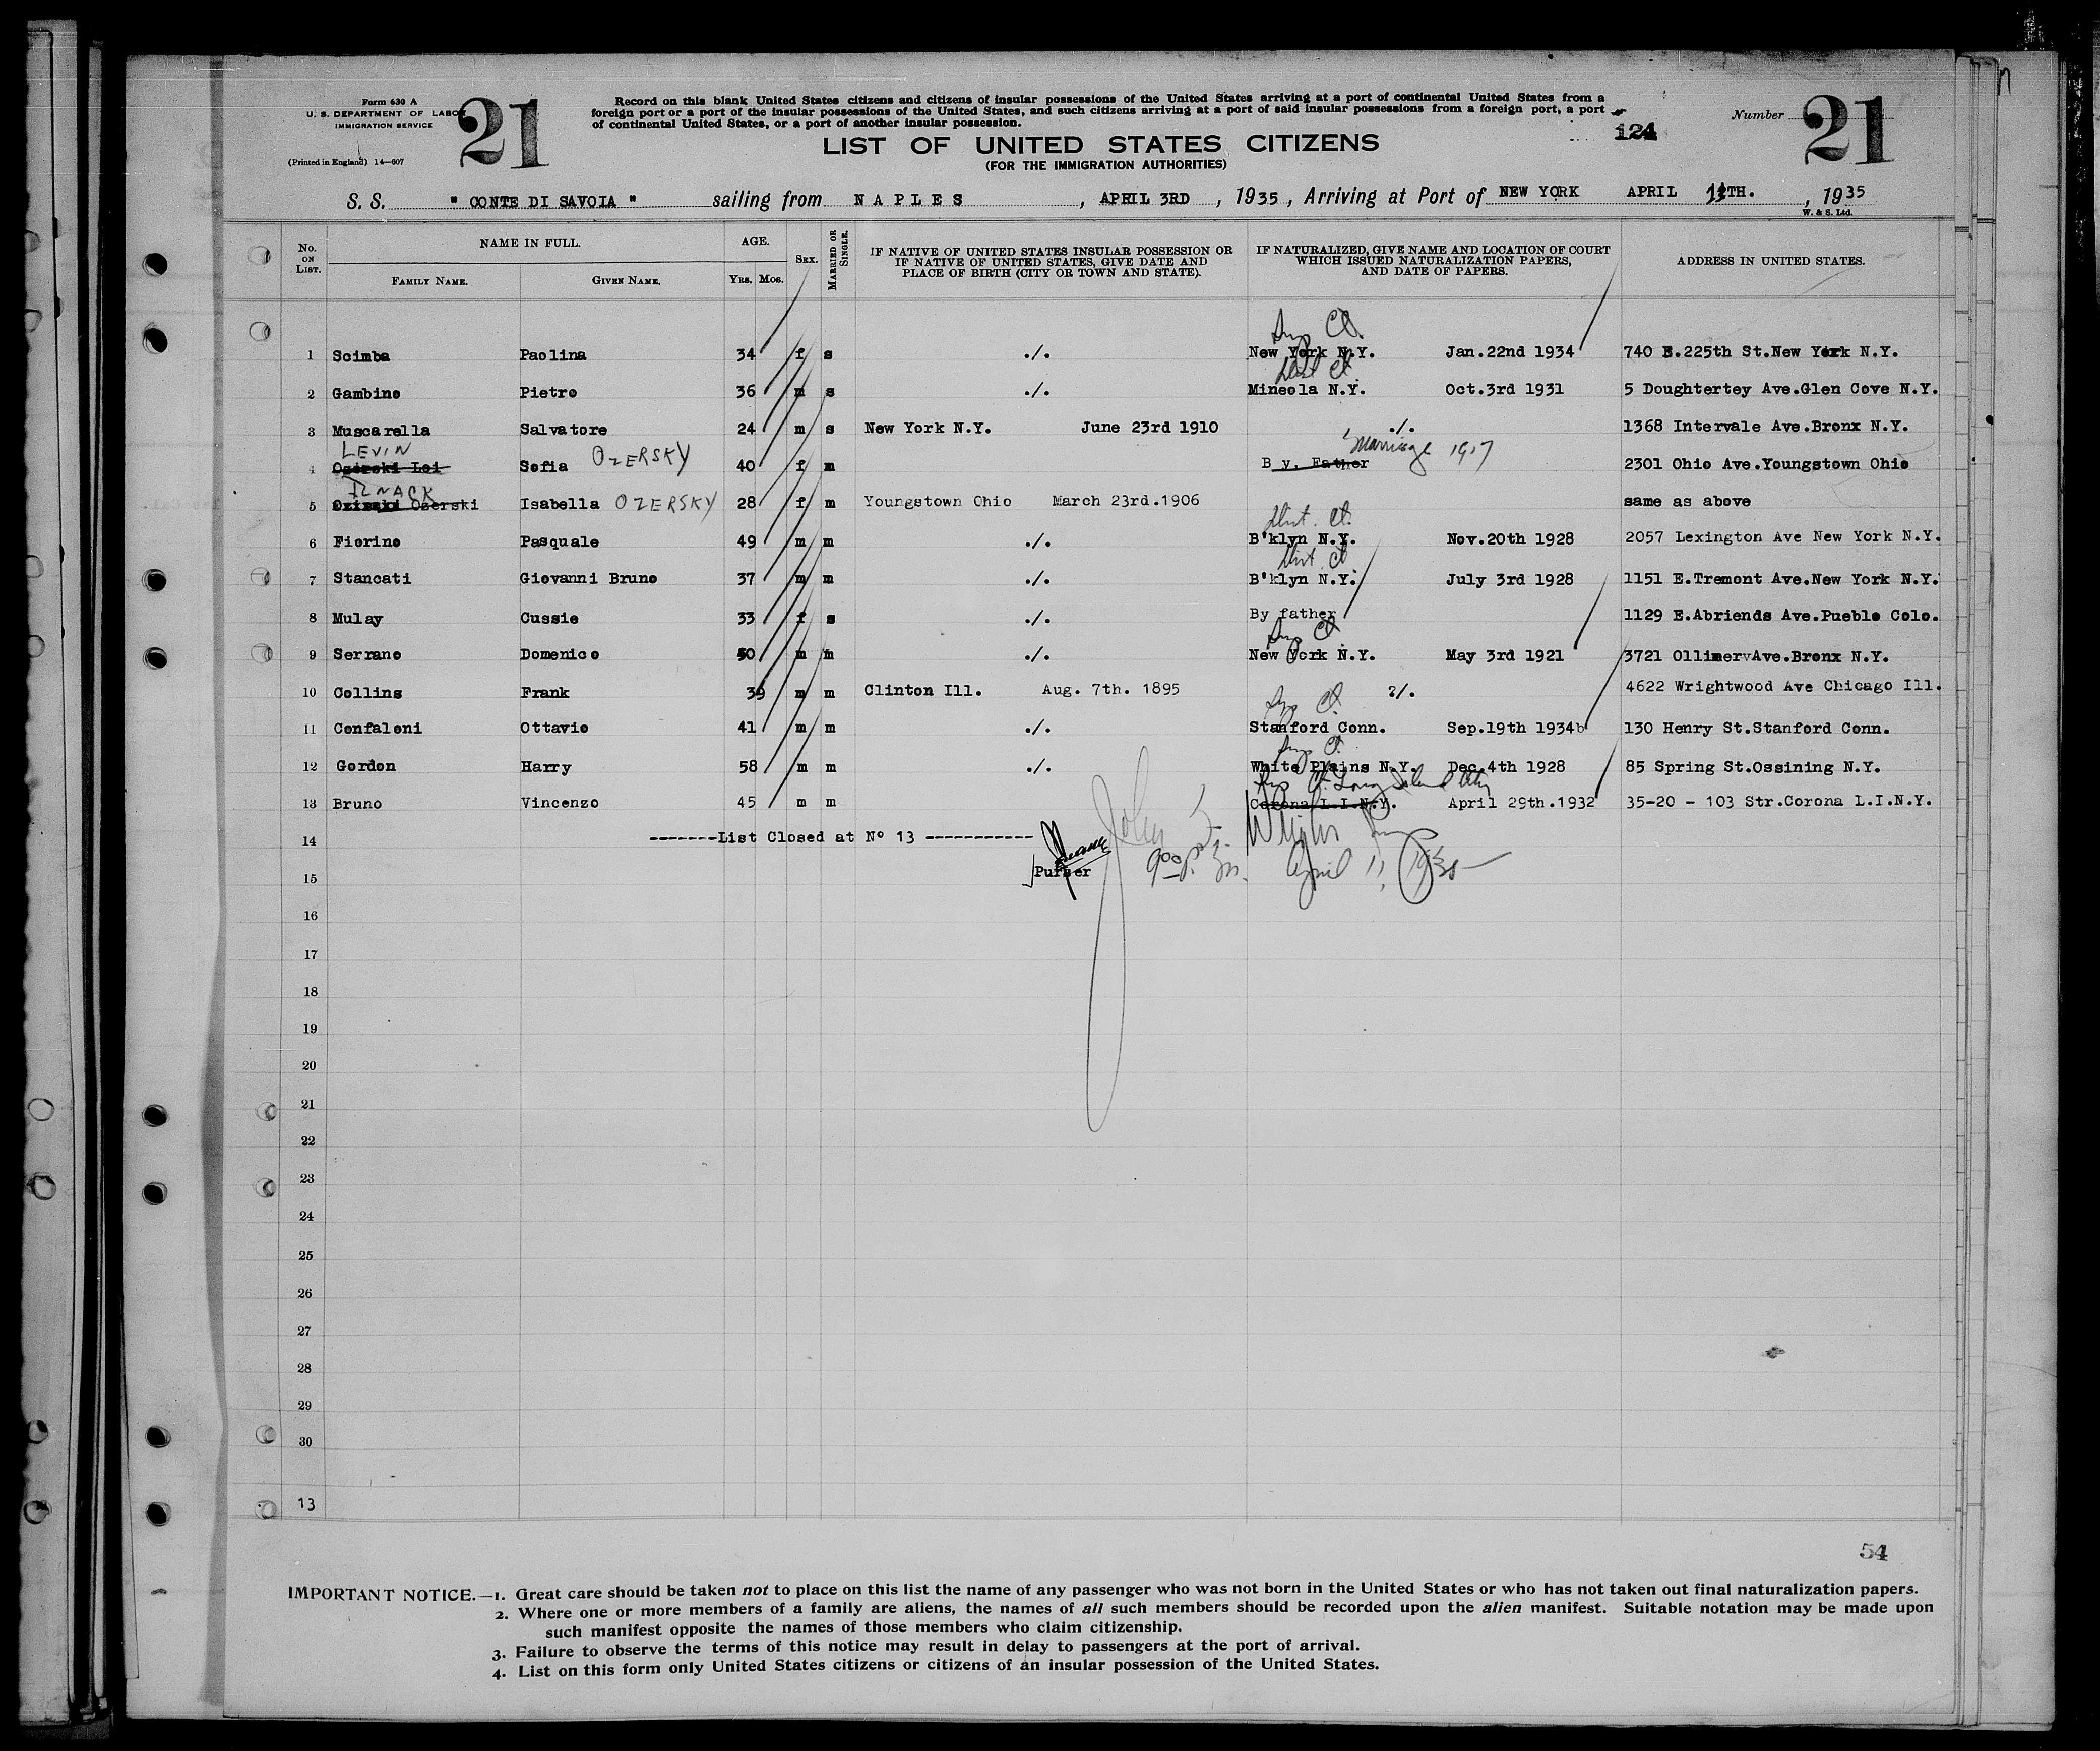 Form 630 A
U. S. DEPARTMENT OF LABOR
IMMIGRATION SERVICE
(Printed in England) 14—607
21
Record on this blank United States citizens and citizens of insular possessions of the United States arriving at a port of continental United States from a
foreign port or a port of the insular possessions of the United States, and such citizens arriving at a port of said insular possessions from a foreign port, a port
of continental United States, or a port of another insular possession.
LIST OF UNITED STATES CITIZENS
(FOR THE IMMIGRATION AUTHORITIES)
124
Number 21
S. S. " CONTE DI SAVOIA " sailing from NAPLES, APRIL 3RD, 1935, Arriving at Port of NEW YORK APRIL 11TH., 1935
W. & S. Ltd.
No. ON LIST.
NAME IN FULL.
FAMILY NAME. GIVEN NAME.
AGE.
YRS. MOS.
SEX.
MARRIED OR SINGLE.
IF NATIVE OF UNITED STATES INSULAR POSSESSION OR
IF NATIVE OF UNITED STATES, GIVE DATE AND
PLACE OF BIRTH (CITY OR TOWN AND STATE).
IF NATURALIZED, GIVE NAME AND LOCATION OF COURT
WHICH ISSUED NATURALIZATION PAPERS,
AND DATE OF PAPERS.
ADDRESS IN UNITED STATES.
Sup Ct.
1 Scimba Paolina 34 f s ./. New York N.Y. Jan.22nd 1934 740 E.225th St.New York N.Y.
Dist Ct.
2 Gambino Pietro 36 m s ./. Mineola N.Y. Oct.3rd 1931 5 Doughtertey Ave.Glen Cove N.Y.
3 Muscarella Salvatore 24 m s New York N.Y. June 23rd 1910 ./. 1368 Intervale Ave.Bronx N.Y.
LEVIN OZERSKY Marriage 1917
4 Ozerski Lei Sofia 40 f m B y. Father 2301 Ohio Ave.Youngstown Ohio
5 Ozerski Isabella OZERSKY 28 f m Youngstown Ohio March 23rd.1906 same as above
Dist. Ct.
6 Fiorino Pasquale 49 m m ./. B'klyn N.Y. Nov.20th 1928 2057 Lexington Ave New York N.Y.
Dist. Ct
7 Stancati Giovanni Bruno 37 m m ./. B'klyn N.Y. July 3rd 1928 1151 E.Tremont Ave.New York N.Y.
8 Mulay Cussie 33 f s ./. By father 1129 E.Abriends Ave.Pueblo Colo.
Sup Ct.
9 Serrano Domenico 50 m m ./. New York N.Y. May 3rd 1921 3721 OllimervAve.Bronx N.Y.
10 Collins Frank 39 m m Clinton Ill. Aug. 7th. 1895 ?/. 4622 Wrightwood Ave Chicago Ill.
Sup Ct.
11 Confaloni Ottavio 41 m m ./. Stanford Conn. Sep.19th 1934b 130 Henry St.Stanford Conn.
Sup Ct.
12 Gordon Harry 58 m m ./. White Plains N.Y. Dec.4th 1928 85 Spring St.Ossining N.Y.
Sup Ct. Long Island City
13 Bruno Vincenzo 45 m m Corona L.I.N.Y. April 29th.1932 35-20 - 103 Str.Corona L.I.N.Y.
14 -------List Closed at Nº 13 -----------
John
15 Purser 9 00 p.m. April 11, 1935
16
17
18
19
20
21
22
23
24
25
26
27
28
29
30
13
54
IMPORTANT NOTICE.—1. Great care should be taken not to place on this list the name of any passenger who was not born in the United States or who has not taken out final naturalization papers.
2. Where one or more members of a family are aliens, the names of all such members should be recorded upon the alien manifest. Suitable notation may be made upon
such manifest opposite the names of those members who claim citizenship.
3. Failure to observe the terms of this notice may result in delay to passengers at the port of arrival.
4. List on this form only United States citizens or citizens of an insular possession of the United States.